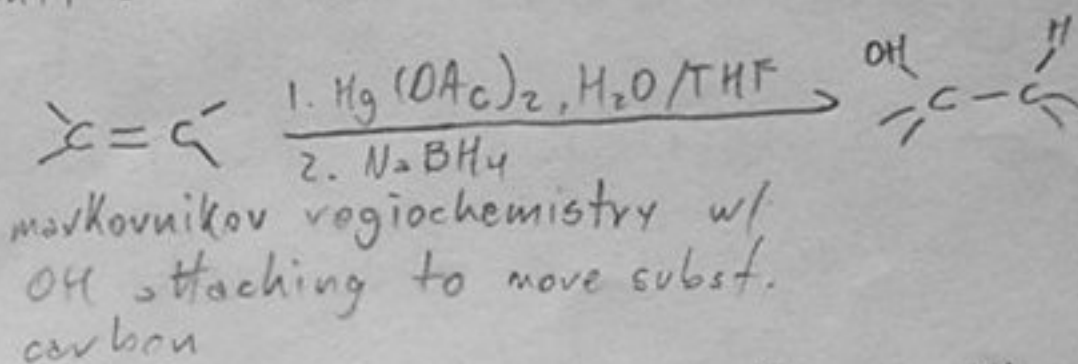 OH H
C = C 1. Hg(OAc)2, H2O/THF C - C
2. NaBH4
markovnikov regiochemistry w/
OH attaching to more subst.
carbon